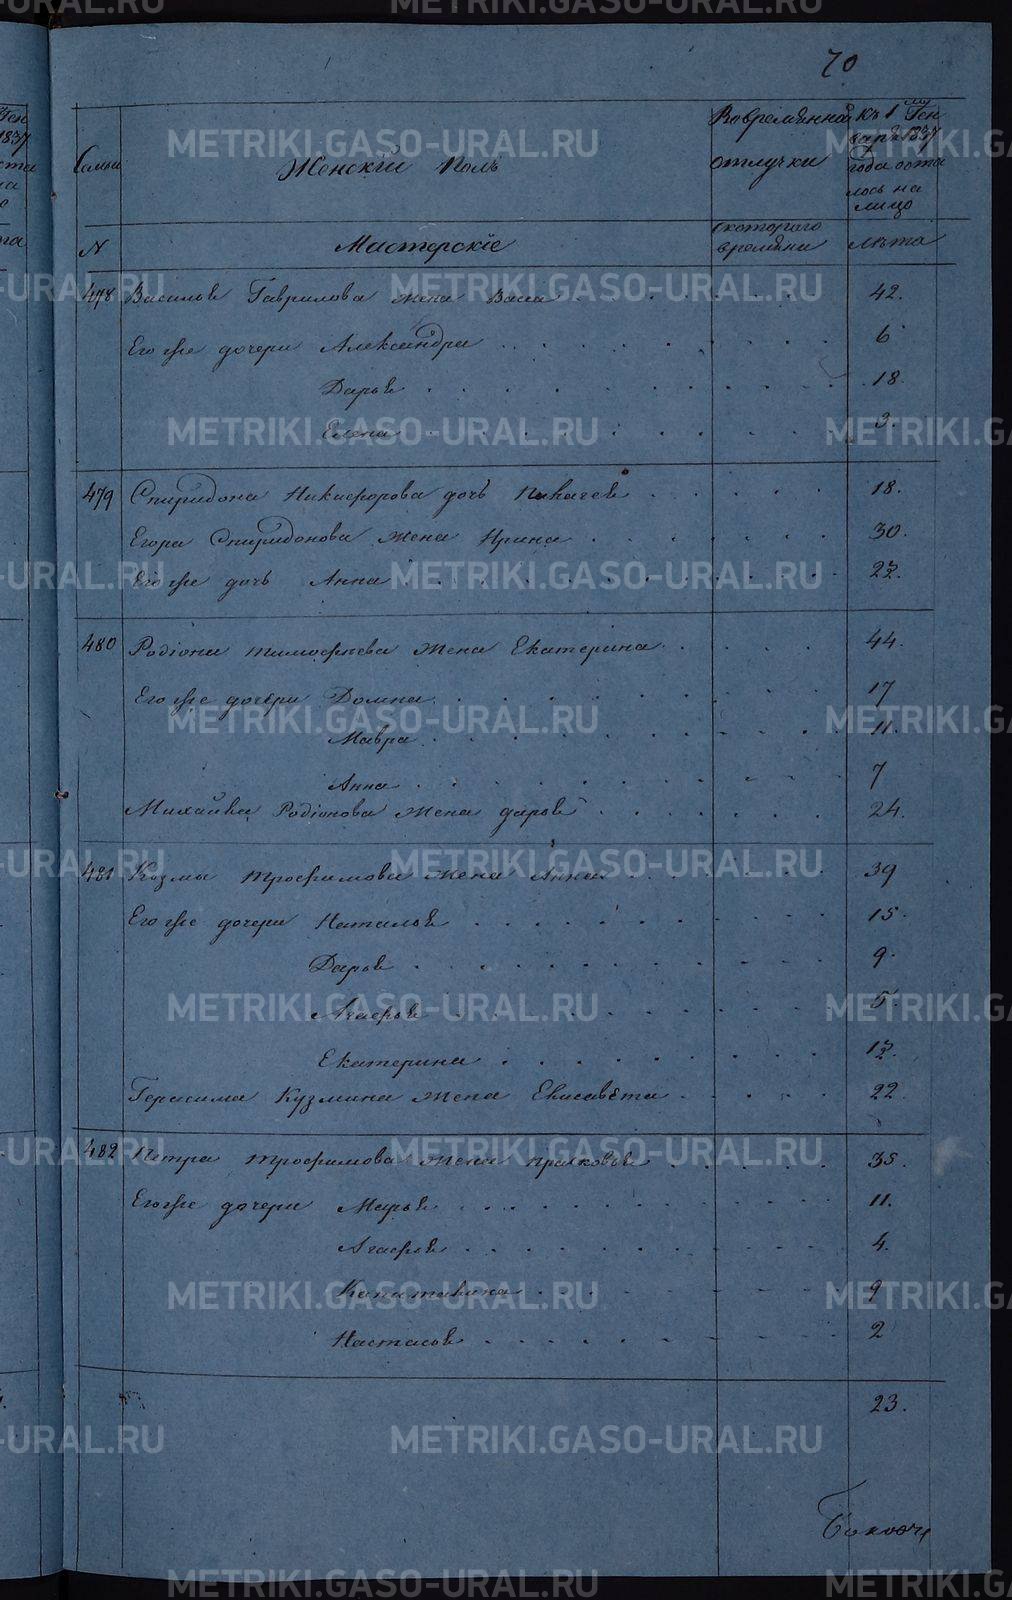 70
Семьи
Женскій полъ
Во временной отлучки
съ котораго времяни
къ 1му Генваря 1837 года осталось на лицо
№
Мастерскіе
лѣта
478 Василья Гаврилова жена Васса 42.
Его же дочери Александра 6
Дарья 18.
Елена 3.
479 Спиридона Никифорова дочь 18.
Егора Спиридонова жена Ирина 30.
Его же дочь Анна
480 Родіона Тимофѣева жена Екатерина 44.
Его же дочери Домна 17
Мавра 11.
Анна 7
Михайла Родіонова жена дарья 24.
481 Козмы Трофимова жена Анна 39
Его же дочери Наталья 15.
Дарья 9.
Агафья 5.
Екатерина
Герасима Кузмина жена Елисавѣта 22
482 Петра Трофимова жена прасковья 35.
Его же дочери Марья 11.
Агафья 4.
Капиталина 9
Настасья 2
23.
METRIKI.GASO-URAL.RU